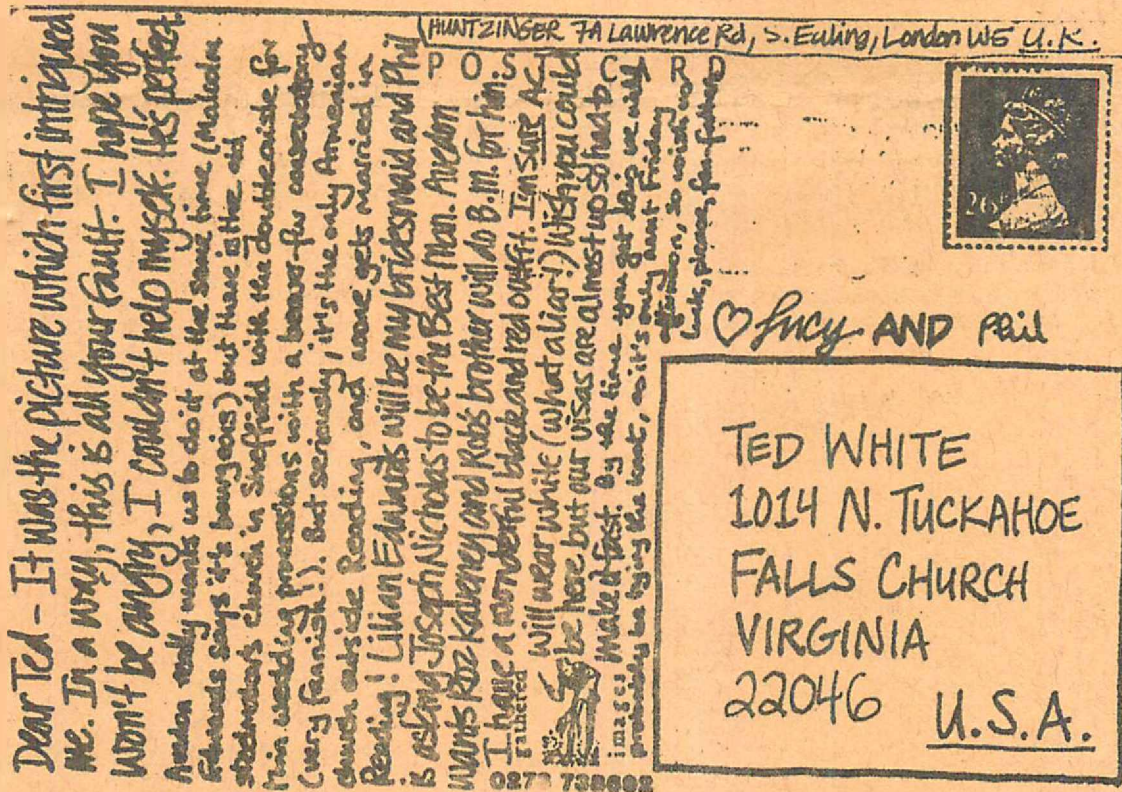 HUNTZINGER 7A Lawrence Rd, S. Ealing, London W5 U.K.
POST CARD
26
Dear Ted - It was the picture which first intrigued
me. In a way, this is all your fault. I hope you
won't be angry, I couldn't help myself. It's perfect.
Avedon really wants us to do it at the same time (Malcolm
Edwards says it's bourgeois) but there is the old
church in Sheffield with the double aisle for
twin wedding processions with a beer-fur
(very fannish!!). But seriously, it's the only Armenian
church outside Reading, and no one gets married in
Reading! Lillian Edwards will be my bridesmaid and Phil
is asking Joseph Nicholas to be the Best Man. Avedon
wants Roz Kaveney and Rob's brother will do B.M. for him.
I have a wonderful black and red outfit. I'm sure Ac
will wear white (what a liar!) Wish you could
be here but our visas are almost up s/had to
make it fast. By the time you get this we will
probably be tying the knot, as it's only next Friday
afternoon, so wish us
luck, please, fan father
gathered
images
0273 738682
♡ Lucy AND Phil
TED WHITE
1014 N. TUCKAHOE
FALLS CHURCH
VIRGINIA
22046
U.S.A.